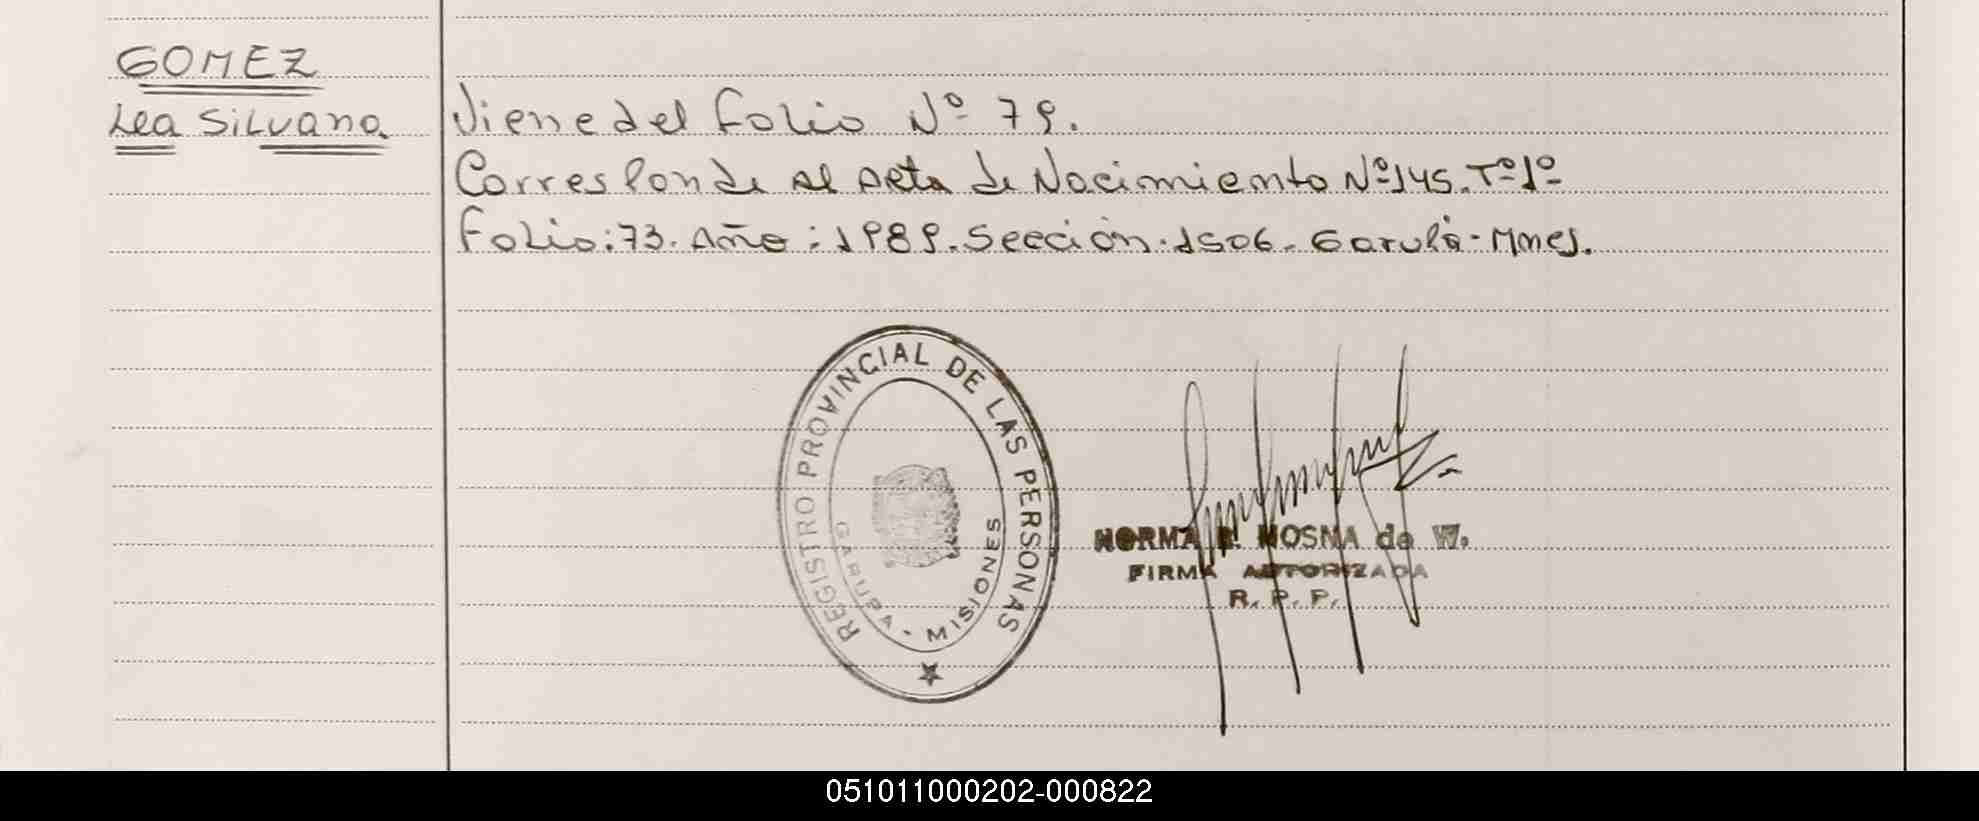 GOMEZ
Lea Silvana
Viene del Folio Nº 79.
Corresponde al Acta de Nacimiento Nº 145. Tº 1º
Folio: 73. Año: 1989. Sección: 1506. Garupá - Mnes.
REGISTRO PROVINCIAL DE LAS PERSONAS
GARUPA - MISIONES
NORMA MOSNA de W.
FIRMA AUTORIZADA
R. P. P.
051011000202-000822